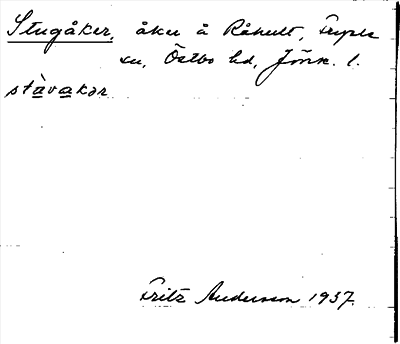 Stugåker, åker å Råhult, Fryele
sn, Östbo hd, Jönk. l.
stàvakər
Fritz Andersson 1937.